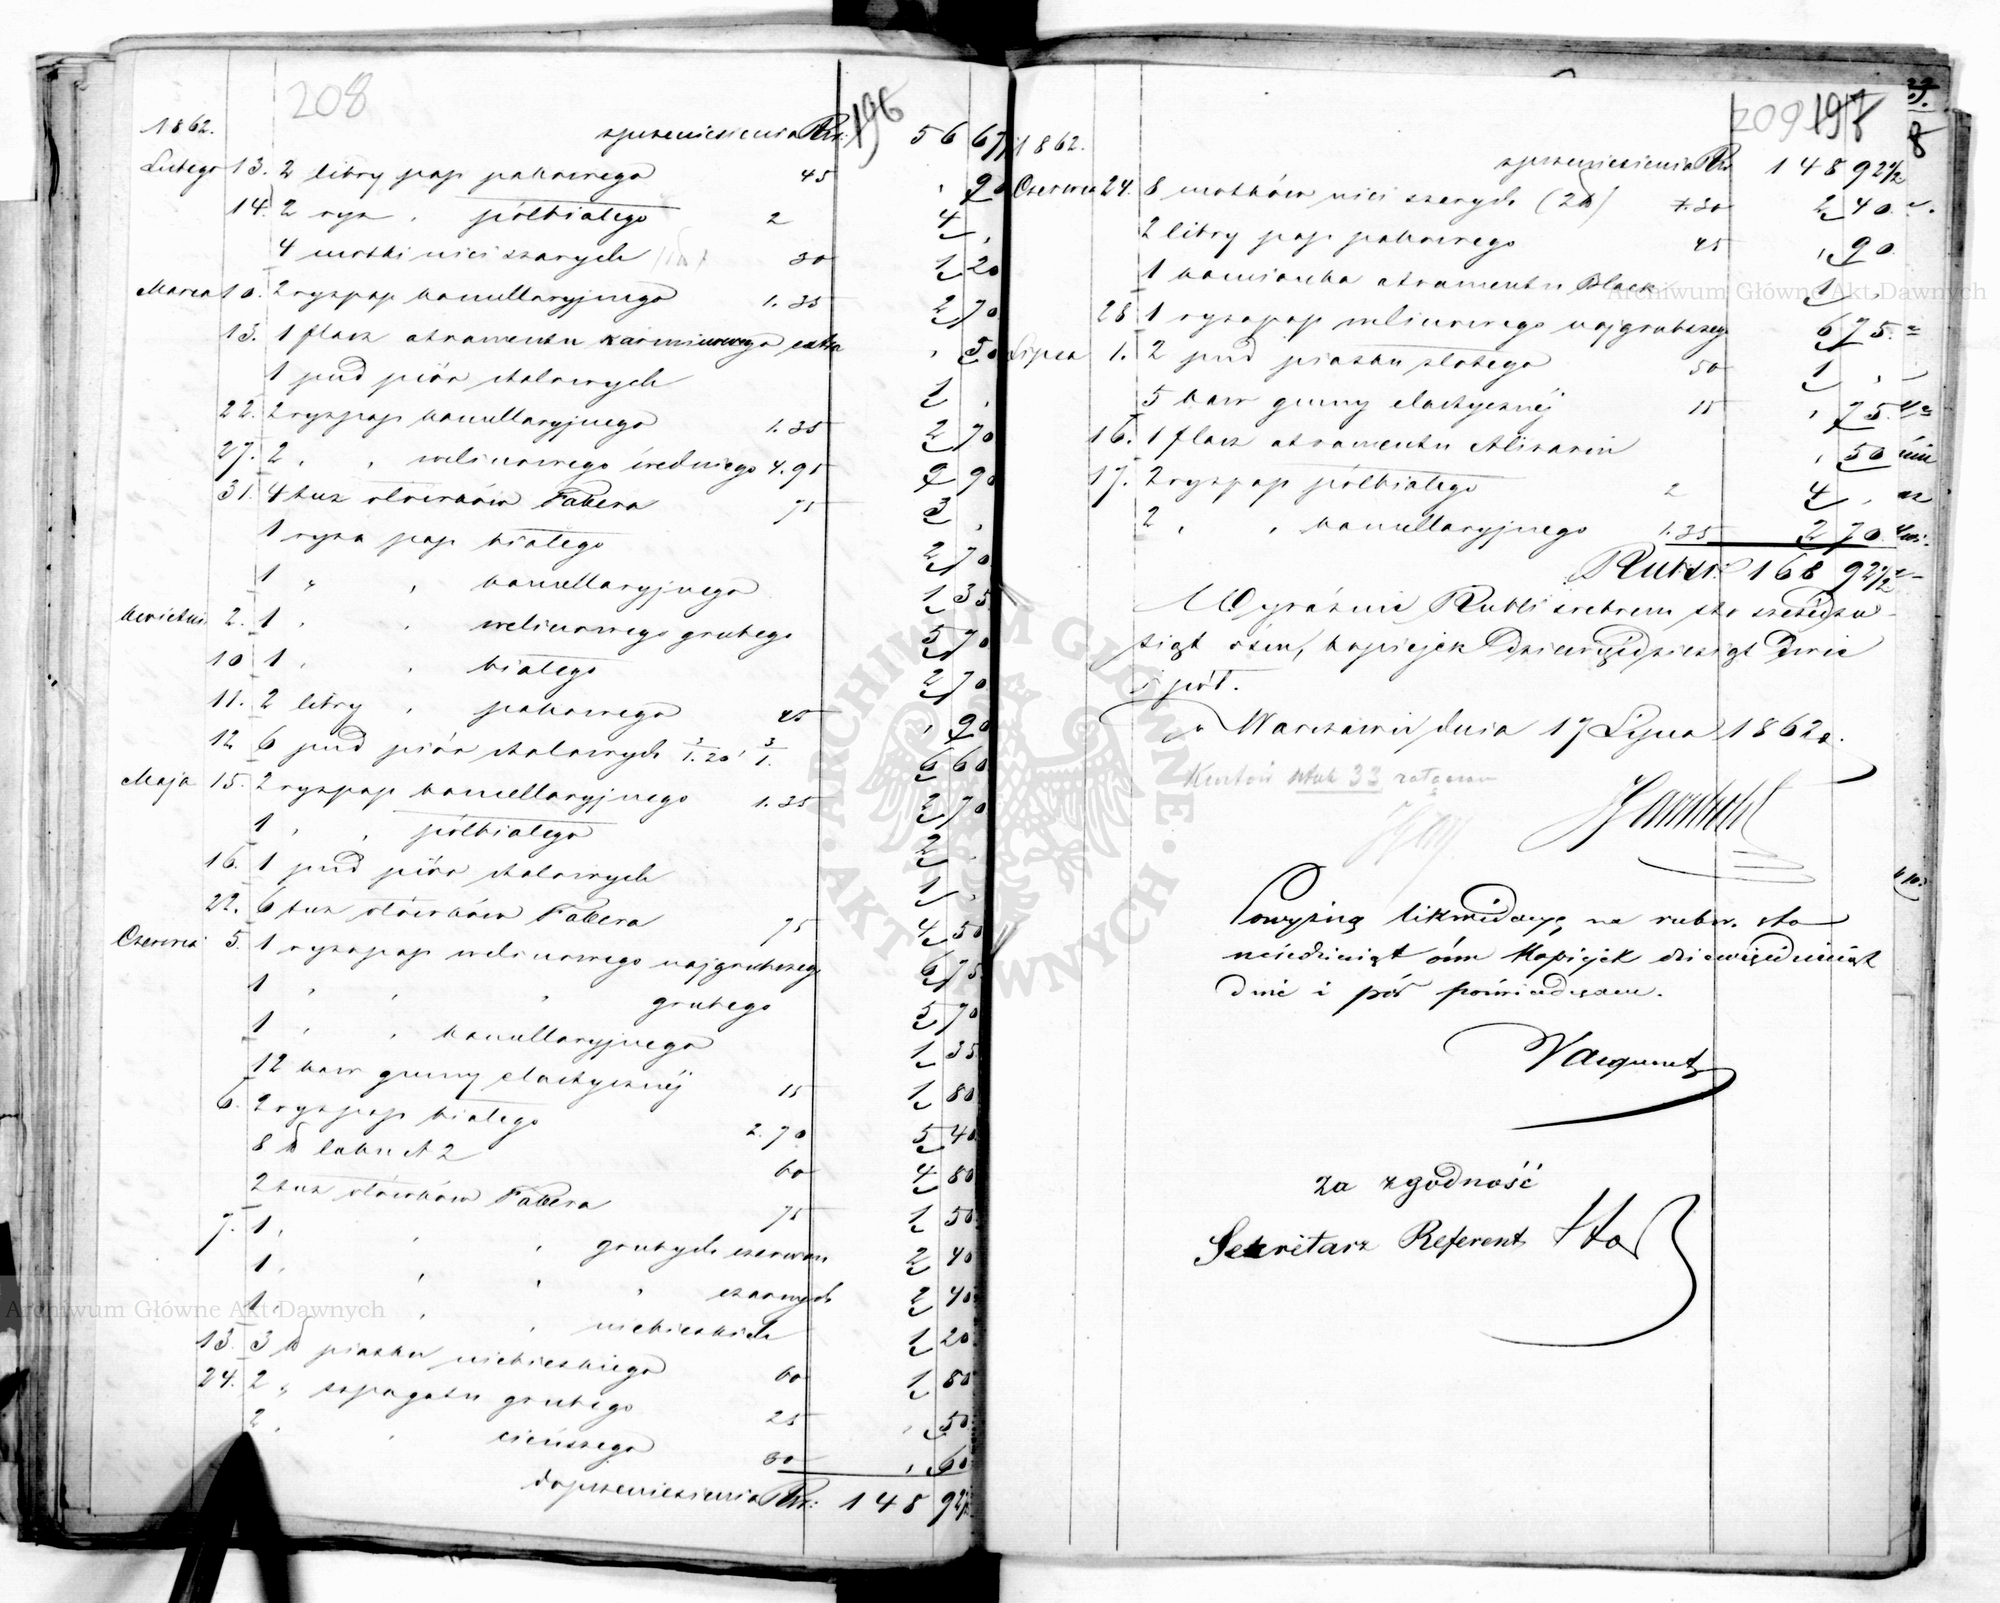 208
196
1862.
z przeniesienia Rsr: 56 67½
Lutego 13. 2 libry pap pakowego 45 „ 90
14. 2 ryz „ półbiałego 2 4 „
4 motki nici szarych 30 1 20
Marca 10. 2 ryz pap kancellaryjnego 1.35 2 70
13. 1 flasz atramentu karminowego extra „ 50
1 pud piór stalowych 1 „
22. 2 ryz pap kancellaryjnego 1.35 2 70
27. 2 „ „ welinowego średniego 4.95 9 90
31. 4 tuz ołówków Fabera 75 3 „
1 ryza pap białego 2 70
1 „ „ kancellaryjnego 1 35
kwietnia 2. 1 „ „ welinowego grubego 5 70
10 1 „ „ białego 2 70
11. 2 libry „ pakowego 45 „ 90
12 6 pud piór stalowych 3/1.20 3/1. 6 60
Maja 15. 2 ryz pap kancellaryjnego 1.35 2 70
1 „ „ półbiałego 2 „
16. 1 pud piór stalowych 1 „
22. 6 tuz ołówków Fabera 75 4 50
Czerwca 5. 1 ryza pap welinowego najgrubszego 6 75
1 „ „ „ grubego 5 70
1 „ „ kancellaryjnego 1 35
12 kaw gumy elastycznéj 15 1 80
6. 2 ryz pap białego 2.70 5 40
8 ℔ laku N 2 60 4 80
2 tuz ołówków Fabera 75 1 50
7. 1 „ „ „ grubych czerwon 2 40
1 „ „ „ „ czarnych 2 40
1 „ „ „ niebieskich 1 20
13. 3 ℔ piasku niebieskiego 60 1 80
24. 2 „ szpagatu grubego 25 „ 50
2 „ „ cieńszego 30 „ 60
do przeniesienia Rsr: 148 92½
209 197
1862.
z przeniesienia Rsr 148 92½
Czerwca 24. 8 motków nici szarych (2℔) 30 2 40
2 libry pap pakowego 45 „ 90
1 kamionka atramentu Black 1 „
28 1 ryza pap welinowego najgrubszego 6 75
Lipca 1. 2 pud piasku złotego 50 1 „
5 kaw gumy elastycznéj 15 „ 75
16. 1 flasz atramentu Alizarin „ 50
17. 2 ryz pap półbiałego 2 4 „
2 „ „ kancellaryjnego 1.35 2 70
Rubsr: 168 92½
Wyraźnie Rubli srebrem sto sześćdzie-
siąt ośm, kopiejek Dziewięćdziesiąt Dwie
i pół.
w Warszawie dnia 17 Lipca 1862 r.
Kwitów sztuk 33 załączam
Powyższą likwidacyę na rubsr. sto
sześćdziesiąt ośm kopiejek dziewięćdziesiąt
dwie i pół poświadczam.
za zgodność
Sekretarz Referent
Archiwum Główne Akt Dawnych
Archiwum Główne Akt Dawnych
ARCHIWUM GŁÓWNE AKT DAWNYCH